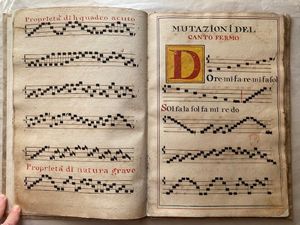 Proprietà di ♮ quadro acuto
Proprietà di natura grave
MUTAZIONI DEL
CANTO FERMO
Do re mi fa re mi fa sol
Sol fa la sol fa mi re do